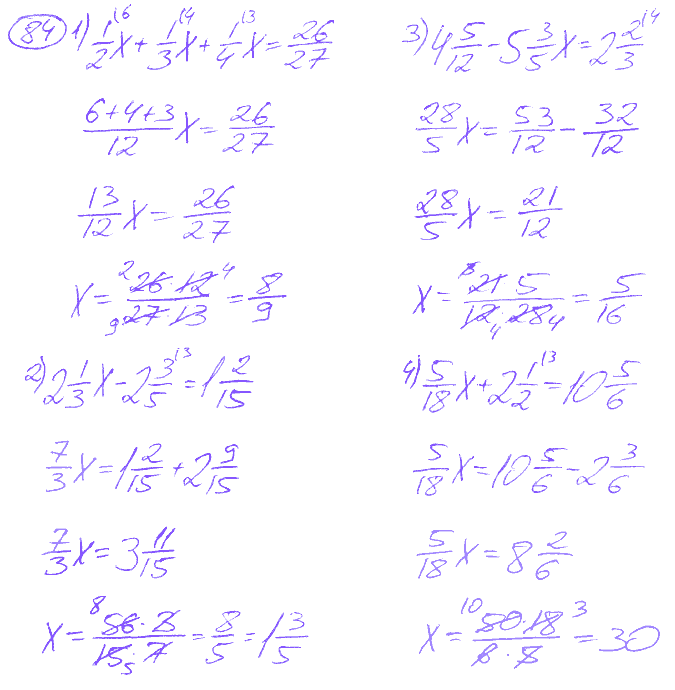 84 1) 1/2 x + 1/3 x + 1/4 x = 26/27
(6+4+3)/12 x = 26/27
13/12 x = 26/27
x = (26·12)/(27·13) = 8/9
2) 2 1/3 x - 2 3/5 = 1 2/15
7/3 x = 1 2/15 + 2 9/15
7/3 x = 3 11/15
x = (56·3)/(15·7) = 8/5 = 1 3/5
3) 4 5/12 - 5 3/5 x = 2 2/3
28/5 x = 53/12 - 32/12
28/5 x = 21/12
x = (21·5)/(12·28) = 5/16
4) 5/18 x + 2 1/2 = 10 5/6
5/18 x = 10 5/6 - 2 3/6
5/18 x = 8 2/6
x = (50·18)/(6·5) = 30